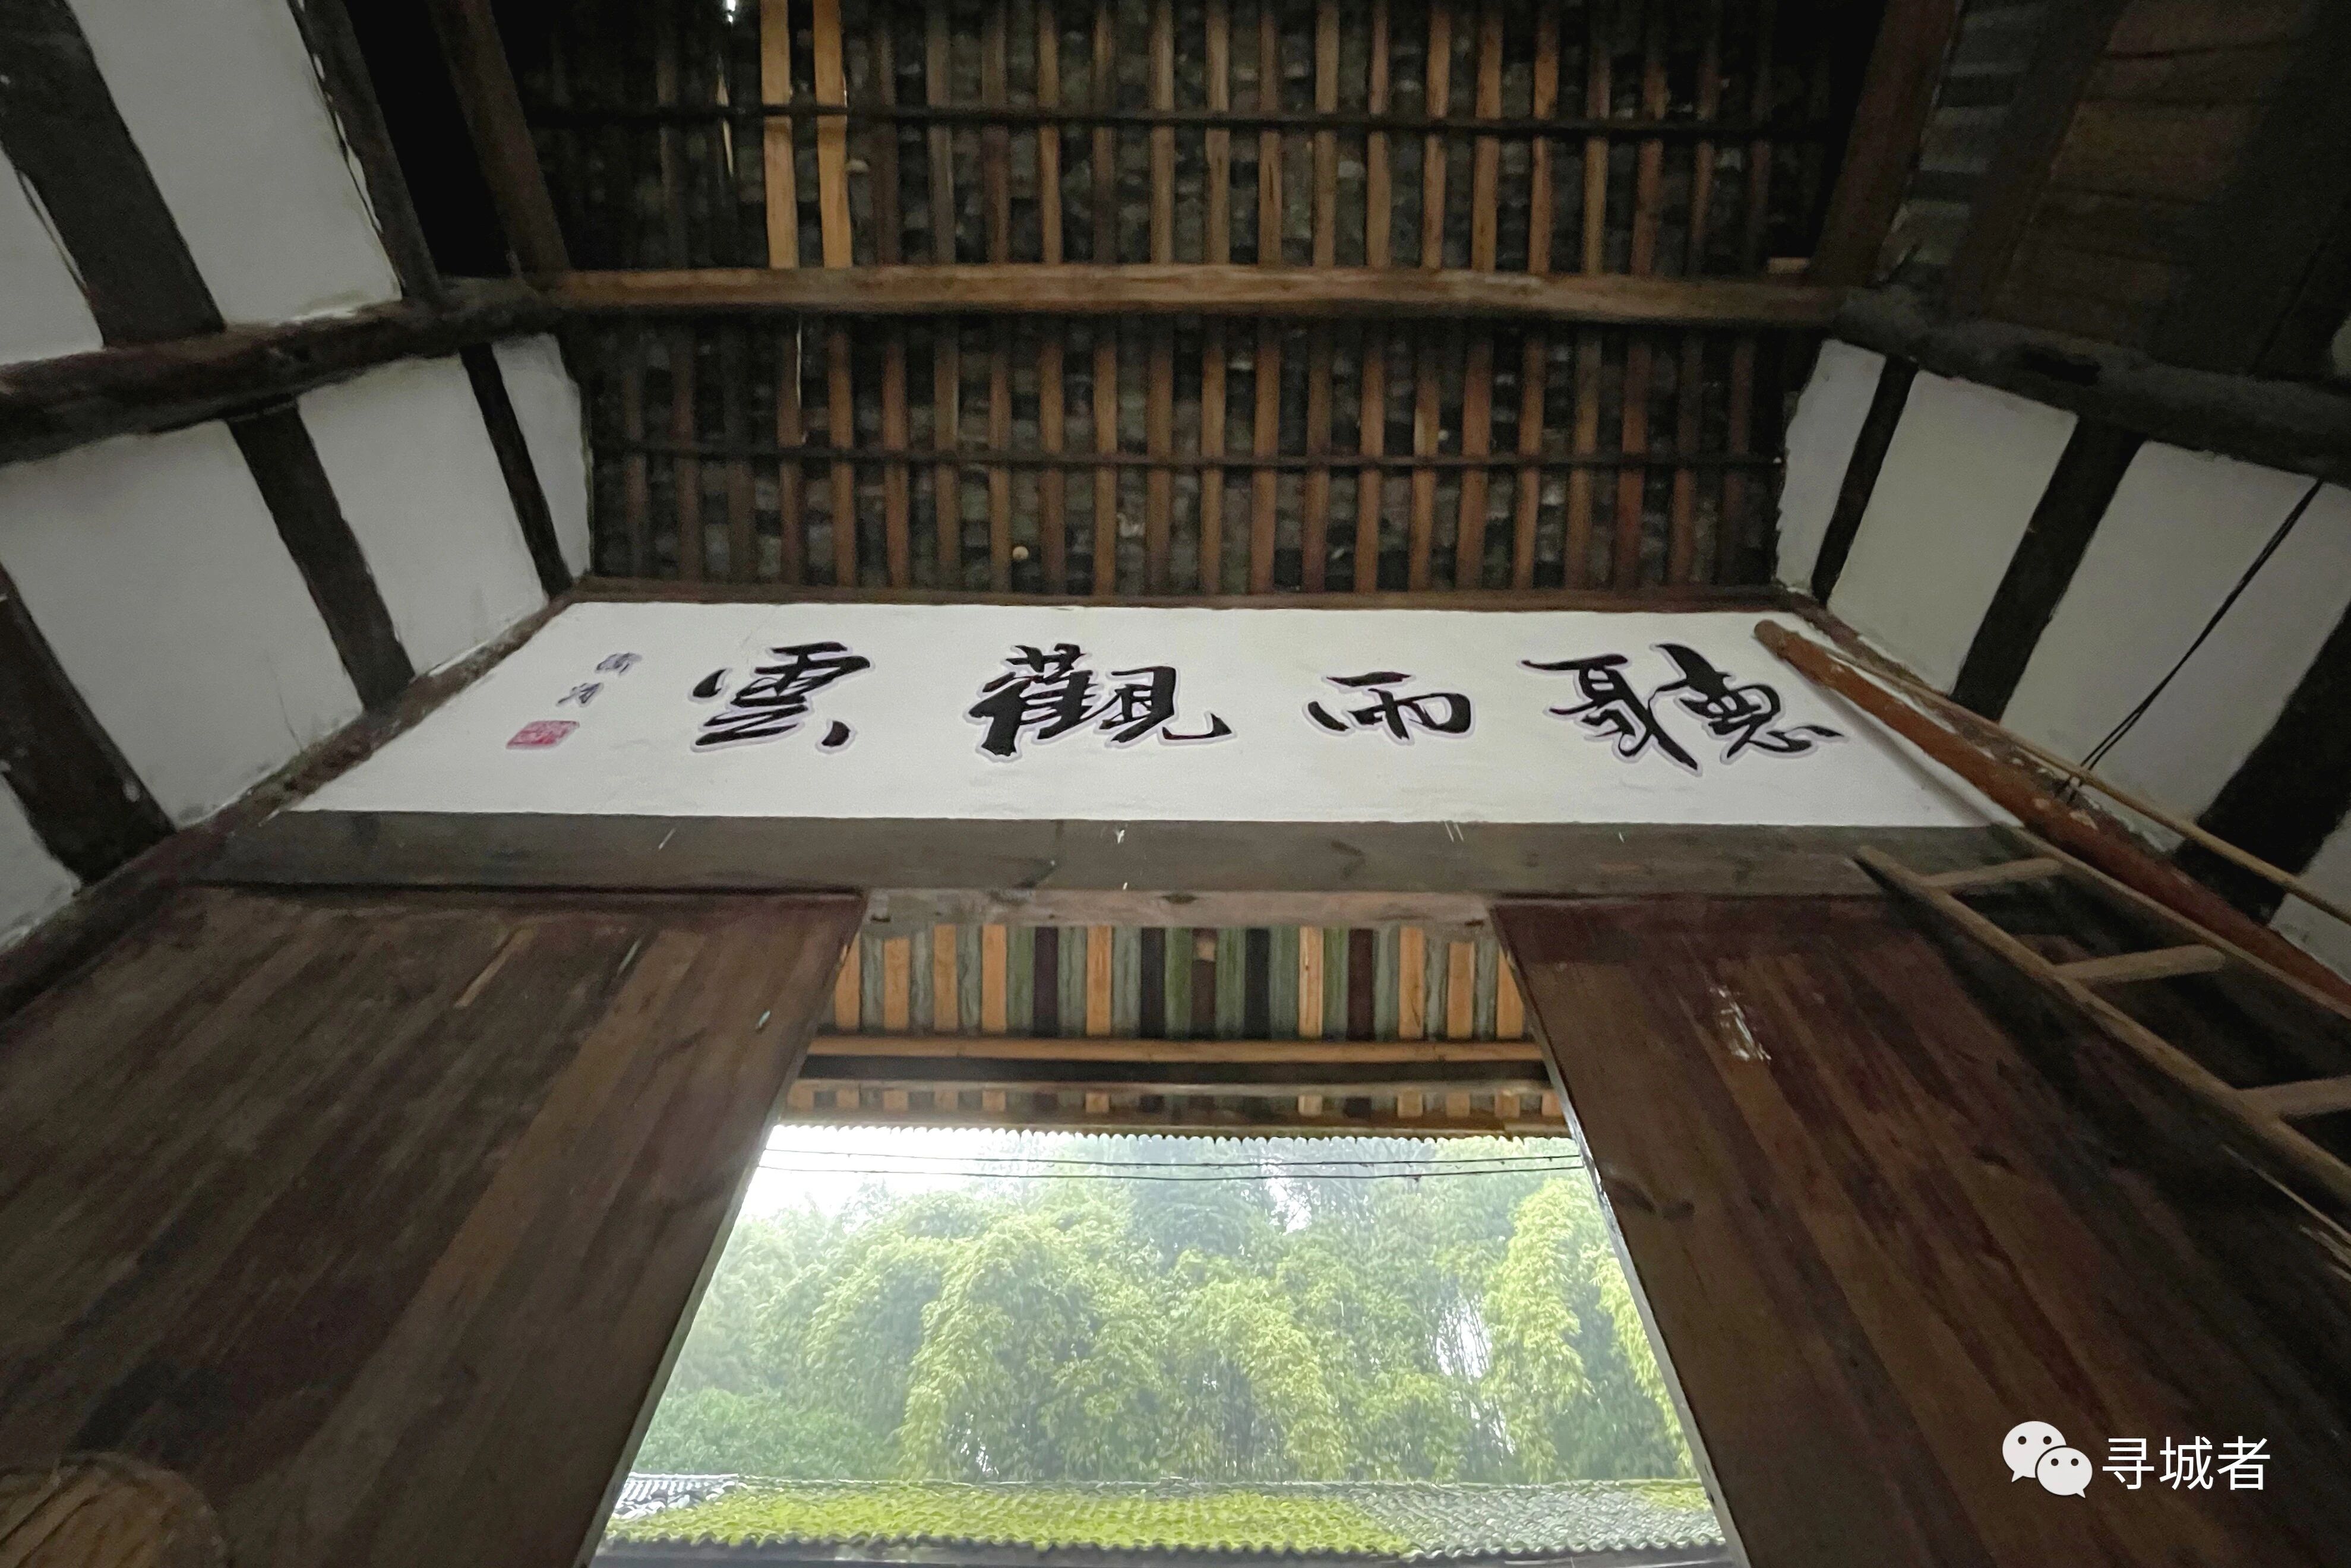 聽雨觀雲
寻城者